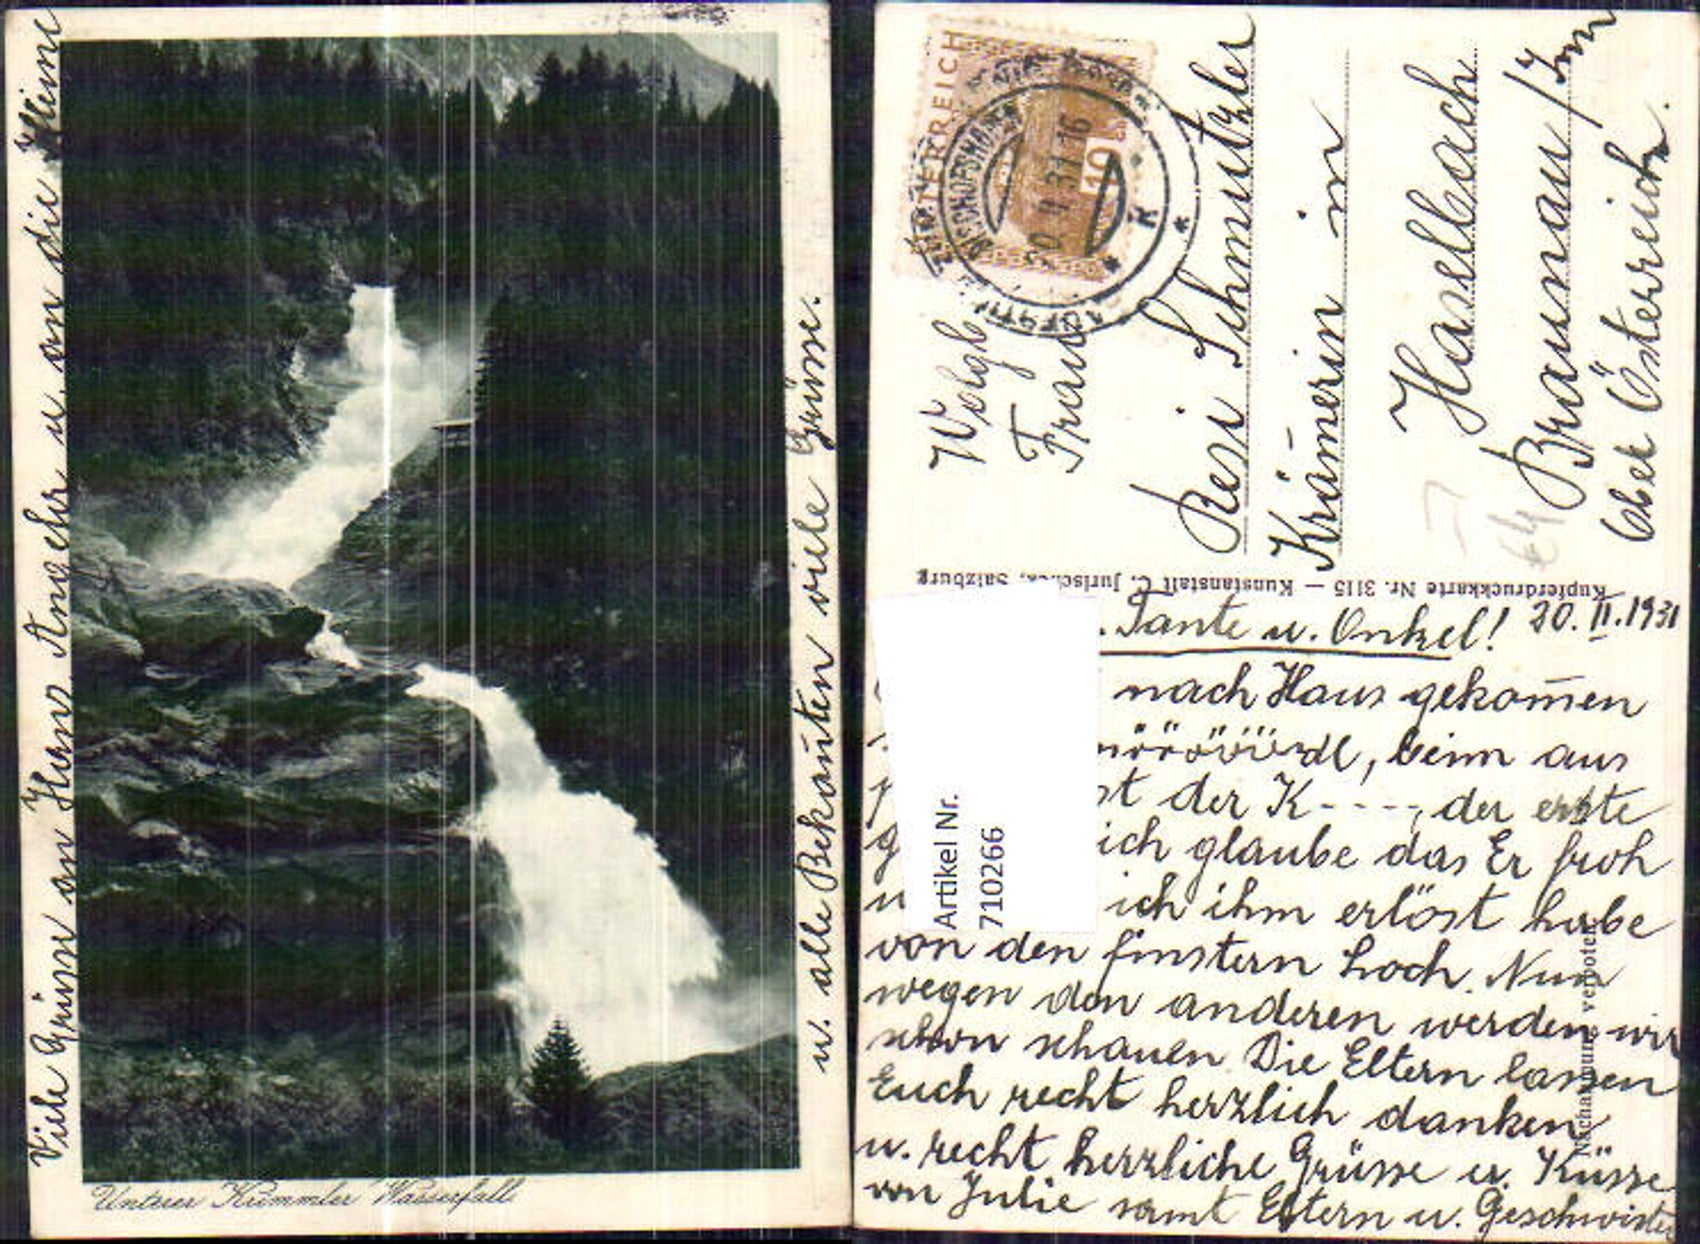 Viele Grüsse an Hans Anocks u. an die Kleine
u. alle Bekan̄ten viele Grüsse.
Unterer Krimmler Wasserfall
ÖSTERREICH
10
BISCHOFSHOFEN
Wolgb
Frau
Resi Schmutzler
Krämerin in
Haselbach
Braunau / Inn
Ober Österreich.
Kupferdruckkarte Nr. 3115 — Kunstanstalt C. Jurischek, Salzburg
Nachahmung verboten
Artikel Nr.
710266
Tante u. Onkel! 20. II. 1931
nach Haus gekom̄en
, beim aus
st der K - - - -, der erste
ich glaube das Er froh
ich ihm erlöst habe
von den finstern Loch. Nun
wegen den anderen werden wir
schon schauen Die Eltern lassen
Euch recht herzlich danken
u. recht herzliche Grüsse u. Küsse
von Julie samt Eltern u. Geschwister